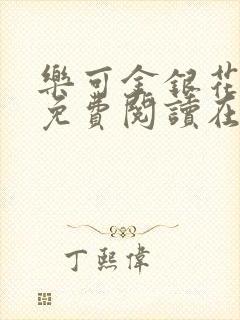 樂可金銀花
免費閱讀在
丁熙偉